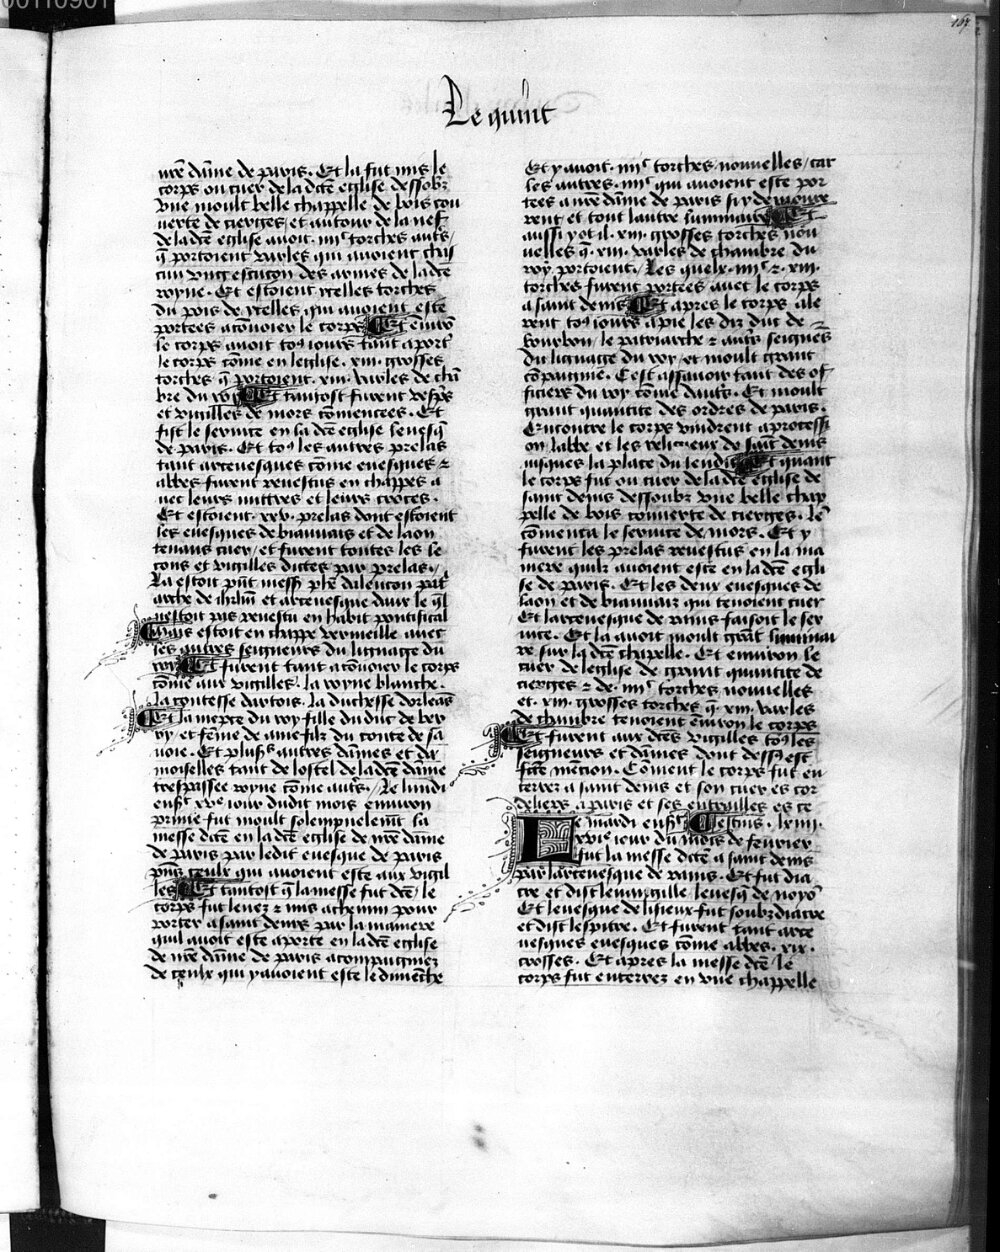 00110901
167
Le quint
nr̄e dame de paris. Et la fut mis le
corps ou cuer de la dc̄e eglise dessoubz
vne moult belle chappelle de bois cou
uerte de cierges, et autour de la nef
de la dc̄e eglise auoit .iiiiᶜ torches aut̄s,
q̄ portoient varles qui auoient chas
cun vng escucon des armes de la dc̄e
royne. Et estoient ycelles torches
du pois de ycelles qui auoient este
portees a conuoier le corps Et enuirō
le corps auoit toꝰ iours tant a port̾
le corps cōme en leglise .xiii. grosses
torches q̄ portoient .xiii. varles de chā
bre du roy Et tantost furent vesp̄s
et vigilles de mors cōmencees. Et
fist le seruice en la dc̄e eglise leuesq̄
de paris. Et toꝰ les autres prelas
tant arceuesques cōme euesques ⁊
abbes furent reuestus en chappes a
uec leurs mittres et leurs croces.
Et estoient .xxv. prelas dont estoient
les euesques de biauuais et de laon
tenans cuer, et furent toutes les le
cons et vigilles dictes par prelas.
La estoit p̄nt mess̾ ph̄e dalencon pat̾
arche de ih̄rl̄m et arceuesque daux le q̄l
nestoit pas reuestu en habit pontifical
Mais estoit en chappe vermeille auec
les autres seigneurs du lignage du
roy Et furent tant a conuoier le corps
cōme aux vigilles. la royne blanche.
La contesse dartois. la duchesse dorleās
Et la mercre du roy fille du duc de ber
ry et fēme de aine filz du conte de sa
uoie. Et plusⁱˢ autres dames et da
moiselles tant de lostel de la dc̄e dame
trespassee royne cōme aut̄s. Le lundi
ens̄t xvᵉ iour dudit mois enuiron
prime fut moult solempnelem̄t la
messe dicte en la dc̄e eglise de nr̄e dame
de paris par ledit euesque de paris
p̄ns ceulx qui auoient este aux vigil
les Et tantost q̄ la messe fut dc̄e, le
corps fut leuez ⁊ mis a chemin pour
porter a saint denis par la maniere
quil auoit este aporte en la dc̄e eglise
de nr̄e dame de paris acompaignez
de ceulx qui y auoient este le dimēche
Et y auoit .iiiiᶜ torches nouuelles, car
les autres .iiiiᶜ qui auoient este por
tees a nr̄e dame de paris si y demoure
rent et tout lautre luminaire Et
aussi y ot il .xiii. grosses torches nou
uelles q̄ .xiii. varles de chambre du
roy portoient. Les quelx .iiiiᶜ ⁊ .xiii.
torches furent portees auec le corps
a saint denis Et apres le corps ale
rent toꝰ iours a pie les diz duc de
bourbon, le patriarche ⁊ aut̄s seigneˢ
du lignage du roy, et moult grant
cōpaignie. Cest assauoir tant des of
ficiers du roy cōme daut̄s. Et moult
grant quantite des ordres de paris.
Encontre le corps vindrent a processi
on labbe et les religieux de saīt denis
iusques la place du lendit Et quant
le corps fut ou cuer de la dc̄e eglise de
saint denis dessoubz vne belle chap
pelle de bois couuerte de cierges. len
cōmenca le seruice de mors. Et y
furent les prelas reuestus en la ma
niere quilz auoient este en la dc̄e egli
se de paris. Et les deux euesques de
laon et de biauuaiz qui tenoient cuer
Et larceuesque de reims faisoit le ser
uice. Et la auoit moult grāt luminai
re sur la dc̄e chapelle. Et enuiron le
cuer de leglise de grant quantite de
cierges ⁊ de .iiiiᶜ torches nouuelles
et .xiii. grosses torches q̄ .xiii. varles
de chambre tenoient enuirō le corps
Et furent aux dc̄es vigilles toꝰ les
seigneurs et dames dont dessꝰ est
fc̄te mencion. Cōment le corps fut en
terrez a saint denis et son cuer es cor
deliers a paris et ses entrailles es ce
Le mardi ens̄t Celestins .lxiii.
xviᵉ iour du mois de feurier
fut la messe dicte a saint denis
par larceuesque de reims. Et fut dia
cre et dist leuangille leuesq̄ de noyō
Et leuesque de lisieux fut soubzdiacre
et dist lespitre. Et furent tant arce
uesques euesques cōme abbes .xix.
crosses. Et apres la messe dc̄e le
corps fut enterrez en vne chappelle